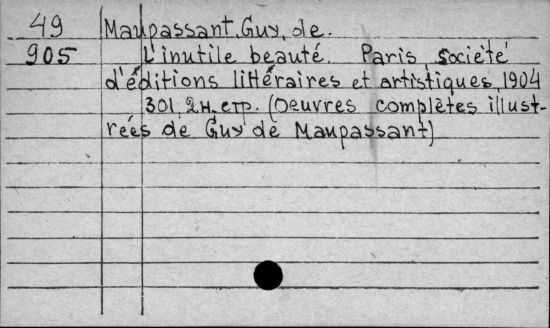 49 Maupassant, Guy, de.
905 L'inutile beauté. Paris, société
d'éditions littéraires et artistiques, 1904
301, 2 н. стр. (Oeuvres complètes illust-
rées de Guy de Maupassant)